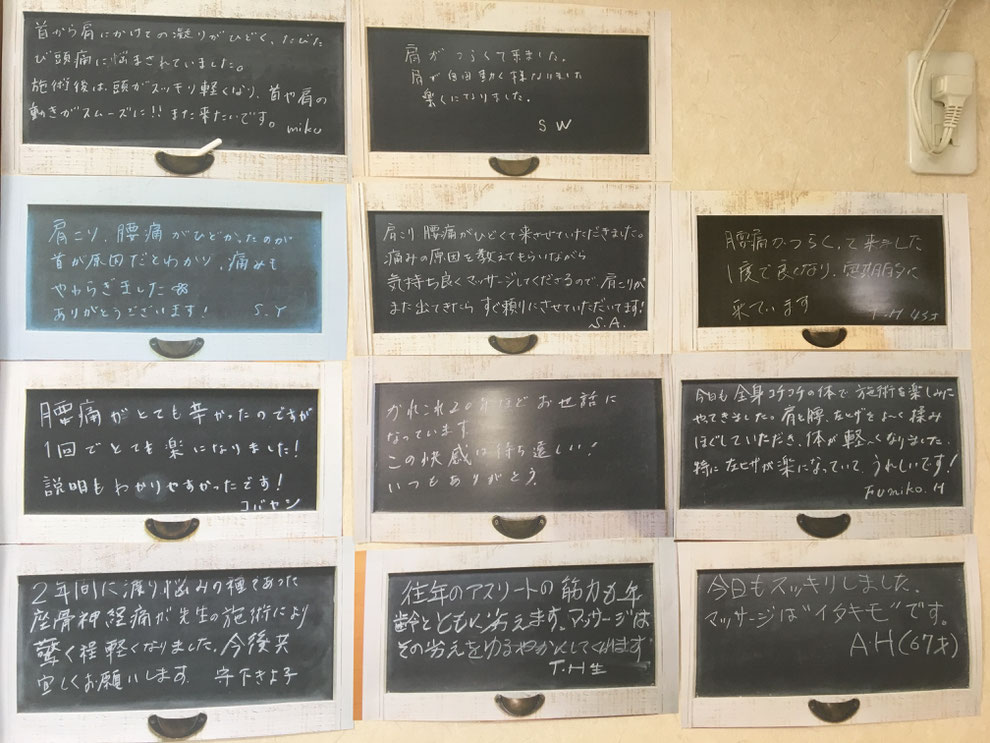 首から肩にかけての凝りがひどく、たびた
び頭痛に悩まされていました。
施術後は、頭がスッキリ軽くなり、首や肩の
動きがスムーズに!!また来たいです。miku
肩がつらくて来ました。
肩が自由動く様なりました
楽くになりました。
SW
肩こり、腰痛がひどかったのが
首が原因だとわかり、痛みも
やわらぎました
ありがとうございます!
S.Y
肩こり 腰痛がひどくて来させていただきました。
痛みの原因を教えてもらいながら
気持ち良くマッサージしてくださるので、肩こりが
また出てきたら すぐ頼りにさせていただいてます!
S.A.
腰痛がつらくって来ました
1度で良くなり、定期的に
来ています
T.H 45才
腰痛がとても辛かったのですが
1回でとても楽になりました!
説明もわかりやすかったです!
コバヤン
かれこれ20年ほどお世話に
なっています
この快感は待ち遠しい!
いつもありがとう。
今日も全身コチコチの体で施術を楽しみに
やってきました。肩と腰、左ヒザをよーく揉み
ほぐしていただき、体が軽くなりました。
特に左ヒザが楽になっていて、うれしいです!
Fumiko.H
2年間に渡り悩みの種であった
座骨神経痛が先生の施術により
驚く程軽くなりました。今後共
宜しくお願いします 守下きよ子
往年のアスリートの筋力も年
齢とともに労えます。マッサージは
その労えをゆるやかにしてくれます
T.H生
今日もスッキリしました。
マッサージは"イタキモ"です。
AH(67才)